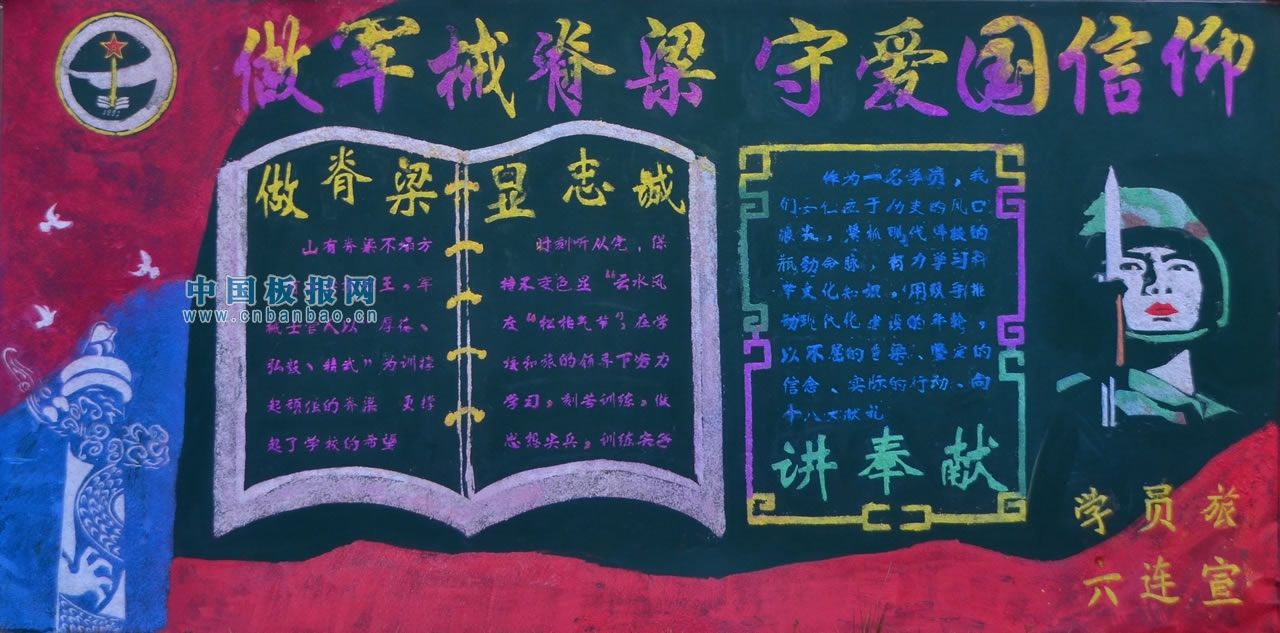 做军械脊梁 守爱国信仰
1931
做脊梁
山有脊梁不塌方
王,军
械士官人以 厚德、
弘毅、精武”为训撑
起顽强的脊梁 更撑
起了学校的希望
显忠诚
时刻听从党,保
持不变色显“云水风
度”“松柏气节”,在学
校和旅的领导下努力
学习,刻苦训练,做
思想尖兵,训练尖子
作为一名学员,我
们 伫立于历史的风口
浪尖,紧抓 代 的
命脉,努力学习科
学文化知识,用双手推
动现代化建设的年轮,
以不屈的脊梁、坚定的
信念、实际的行动、向
十八大献礼
讲奉献
学员旅
六连宣
中国板报网
www.cnbanbao.cn